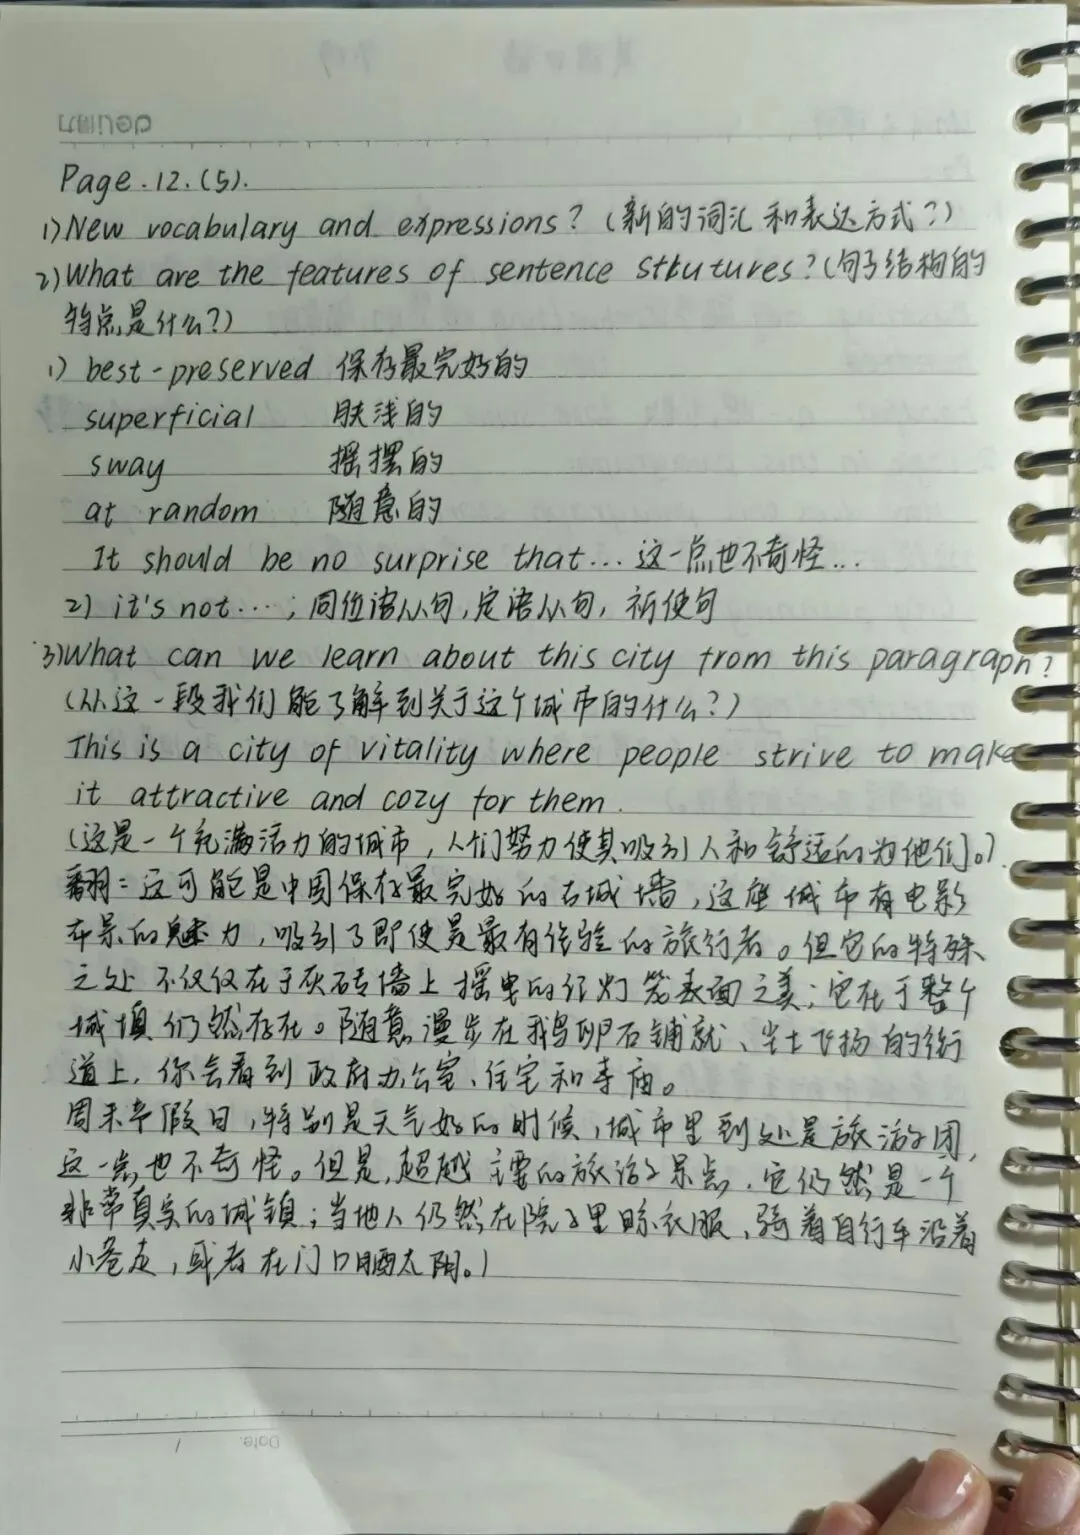 Page.12.(5).
1) New vocabulary and expressions?(新的词汇和表达方式?)
2) What are the features of sentence stkutures?(句子结构的
特点是什么?)
1) best-preserved 保存最完好的
superficial 肤浅的
sway 摇摆的
at random 随意的
It should be no surprise that... 这一点也不奇怪...
2) it's not...; 同位语从句,定语从句,祈使句
3) What can we learn about this city from this paragraph?
(从这一段我们能了解到关于这个城市的什么?)
This is a city of vitality where people strive to make
it attractive and cozy for them.
(这是一个充满活力的城市,人们努力使其吸引人和舒适的为他们。)
翻:这可能是中国保存最完好的古城墙,这座城市有电影
布景的魅力,吸引了即使是最有经验的旅行者。但它的特殊
之处不仅仅在于灰砖墙上摇曳的红灯笼表面之美;它在于整个
城镇仍然存在。随意漫步在鹅卵石铺就、尘土飞扬的街
道上,你会看到政府办公室、住宅和寺庙。
周末和假日,特别是天气好的时候,城市里到处是旅游团,
这一点也不奇怪。但是,超越主要的旅游景点,它仍然是一个
非常真实的城镇;当地人仍然在院子里晾衣服,骑着自行车沿着
小巷走,或者在门口晒太阳。)
Date.
deli 得力